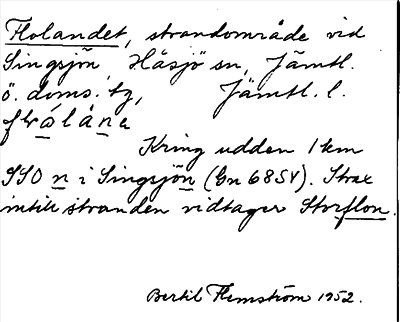 Flolandet, strandområde vid
Singsjön Håsjö sn, Jämtl.
ö. doms. tg, Jämtl. l.
Kring udden 1 km
SSO n i Singsjön (Gn 68SV). Strax
intill stranden vidtager Storflon.
Bertil Flemström 1952.